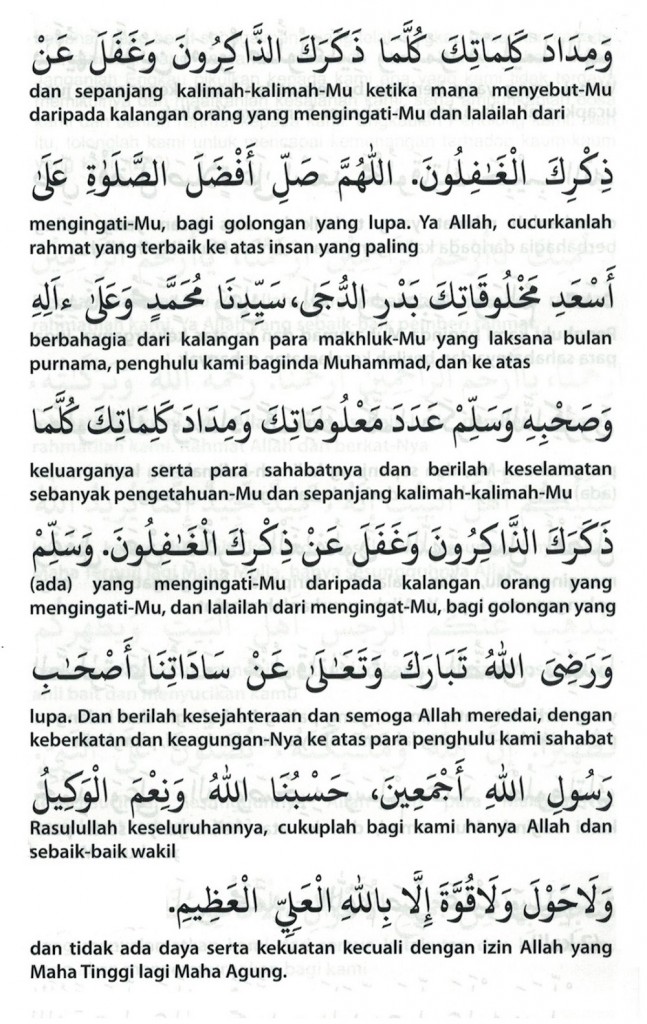 وَمِدَادَ كَلِمَاتِكَ كُلَّمَا ذَكَرَكَ الذَّاكِرُونَ وَغَفَلَ عَنْ
dan sepanjang kalimah-kalimah-Mu ketika mana menyebut-Mu
daripada kalangan orang yang mengingati-Mu dan lalailah dari
ذِكْرِكَ الْغَـٰفِلُونَ. اللَّهُمَّ صَلِّ أَفْضَلَ الصَّلَوٰةِ عَلَىٰ
mengingati-Mu, bagi golongan yang lupa. Ya Allah, cucurkanlah
rahmat yang terbaik ke atas insan yang paling
أَسْعَدِ مَخْلُوقَاتِكَ بَدْرِ الدُّجَى، سَيِّدِنَا مُحَمَّدٍ وَعَلَىٰ ءَالِهِ
berbahagia dari kalangan para makhluk-Mu yang laksana bulan
purnama, penghulu kami baginda Muhammad, dan ke atas
وَصَحْبِهِ وَسَلِّمْ عَدَدَ مَعْلُومَاتِكَ وَمِدَادَ كَلِمَاتِكَ كُلَّمَا
keluarganya serta para sahabatnya dan berilah keselamatan
sebanyak pengetahuan-Mu dan sepanjang kalimah-kalimah-Mu
ذَكَرَكَ الذَّاكِرُونَ وَغَفَلَ عَنْ ذِكْرِكَ الْغَـٰفِلُونَ. وَسَلِّمْ
(ada) yang mengingati-Mu daripada kalangan orang yang
mengingati-Mu, dan lalailah dari mengingat-Mu, bagi golongan yang
وَرَضِىَ اللهُ تَبَارَكَ وَتَعَالَىٰ عَنْ سَادَاتِنَا أَصْحَـٰبِ
lupa. Dan berilah kesejahteraan dan semoga Allah meredai, dengan
keberkatan dan keagungan-Nya ke atas para penghulu kami sahabat
رَسُولِ اللهِ أَجْمَعِينَ، حَسْبُنَا اللهُ وَنِعْمَ الْوَكِيلُ
Rasulullah keseluruhannya, cukuplah bagi kami hanya Allah dan
sebaik-baik wakil
وَلَاحَوْلَ وَلَاقُوَّةَ إِلَّا بِاللهِ الْعَلِيِّ الْعَظِيمِ.
dan tidak ada daya serta kekuatan kecuali dengan izin Allah yang
Maha Tinggi lagi Maha Agung.